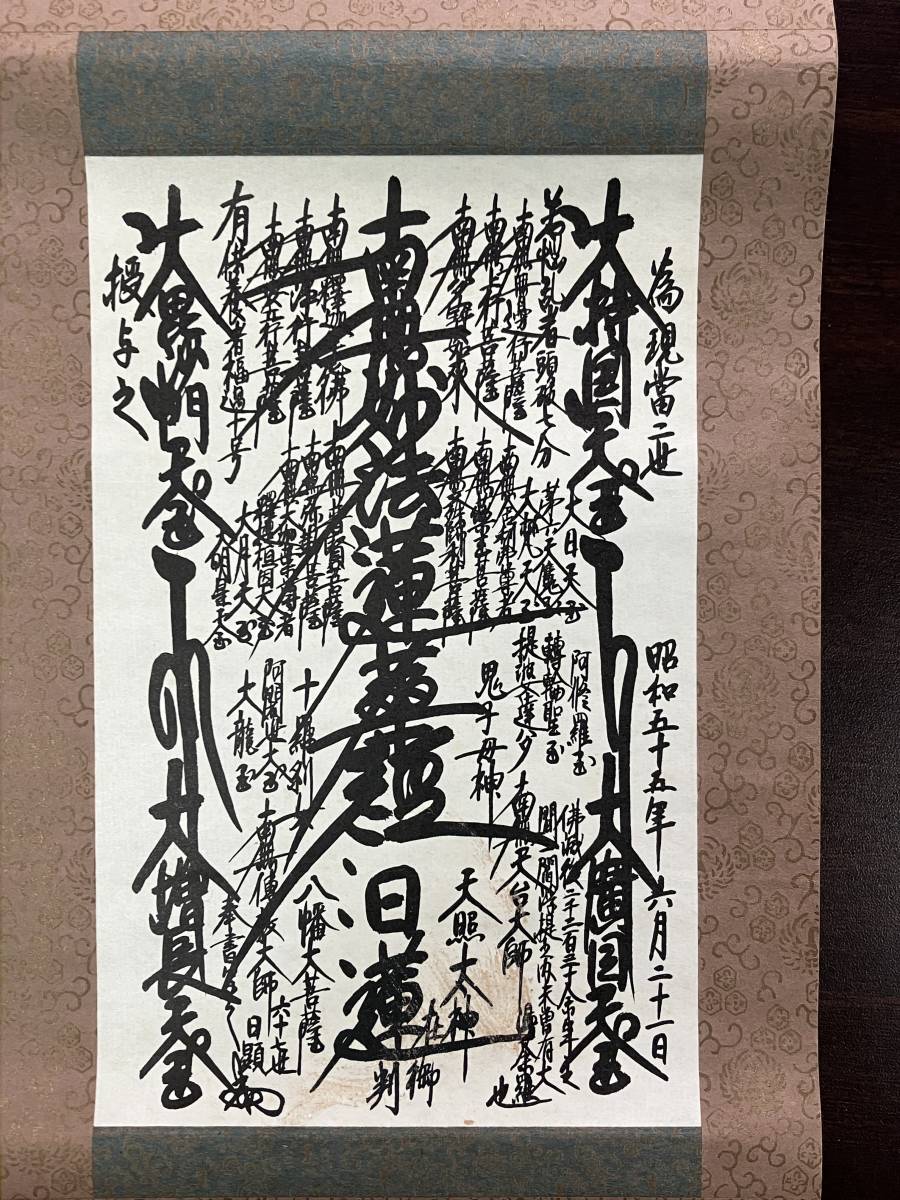 為現當二世
昭和五十五年六月二十一日
大持国天王
大廣目天王
若悩乱者頭破七分
南無無邊行菩薩
南無上行菩薩
南無多寳如来
南無妙法蓮華経
日蓮
在御判
南無釋迦牟尼佛
南無浄行菩薩
南無安立行菩薩
有供養者福過十号
大毘沙門天王
大増長天王
授与之
大日天王
第六天魔王
大梵天王
南無舎利弗尊者
南無薬王菩薩
南無文殊師利菩薩
南無普賢菩薩
南無弥勒菩薩
南無大迦葉尊者
釋提桓因大王
大月天王
大明星天王
阿修羅王
轉輪聖王
提婆達多
鬼子母神
十羅刹女
阿闍世大王
大龍王
佛滅後二千二百三十余年之
間一閻浮提之内未曾有大
漫荼羅
也
南無天台大師
天照太神
八幡大菩薩
南無傳教大師
六十七世
日顕
奉書写之